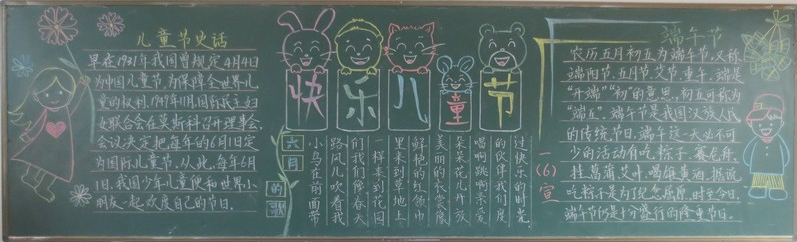 儿童节史话
早在1931年我国曾规定4月4日
为中国儿童节,为保障全世界儿
童的权利,1949年11月,国际民主妇
女联合会在莫斯科召开理事会,
会议决定把每年的6月1日定
为国际儿童节。从此,每年6月
1日,我国少年儿童便和世界小
朋友一起欢度自己的节日。
快乐儿童节
六月
的
过快乐的时光
的伙伴我们度
唱啊跳啊亲爱
朵朵花儿开放
美丽的衣裳像
鲜艳的红领巾
里来到草地上
一样来到花园
们我们像春天
路风儿吹着我
小鸟在前面带
一(6)宣
端午节
农历五月初五为端午节,又称
端阳节,五月节,艾节,重午,端是
“开端”“初”的意思,初五可称为
“端五”。端午节是我国汉族人民
的传统节日。端午这一天必不可
少的活动有吃粽子,赛龙舟,
挂菖蒲,艾叶,喝雄黄酒,据说
吃粽子是为了纪念屈原,时至今日,
端午节仍是十分盛行的隆重节日。